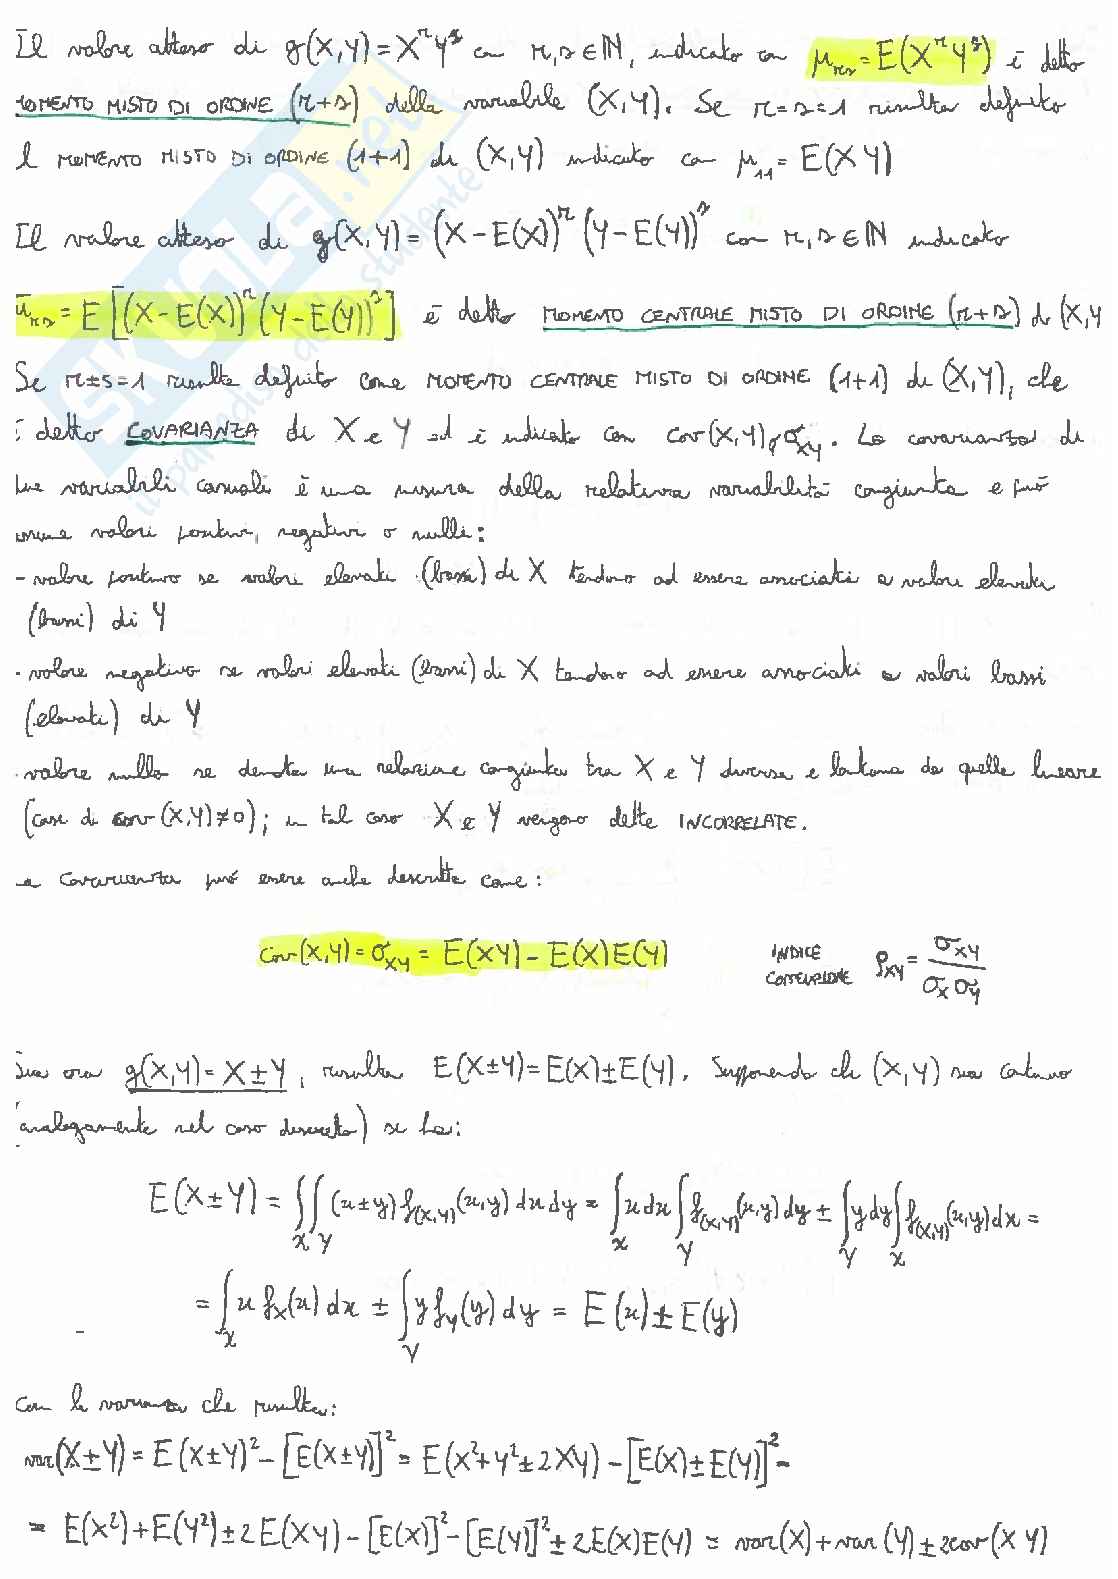 Il valore atteso di g(X,Y) = XʳYˢ con r,s ∈ ℕ, indicato con μᵣₛ = E(XʳYˢ) è detto
MOMENTO MISTO DI ORDINE (r+s) della variabile (X,Y). Se r=s=1 risulta definito
l MOMENTO MISTO DI ORDINE (1+1) di (X,Y) indicato con μ₁₁ = E(XY)
Il valore atteso di g(X,Y) = (X-E(X))ʳ (Y-E(Y))ˢ con r,s ∈ ℕ indicato
μ̄ᵣₛ = E[(X-E(X))ʳ (Y-E(Y))ˢ] è detto MOMENTO CENTRALE MISTO DI ORDINE (r+s) di (X,Y
Se r±s=1 risulta definito come MOMENTO CENTRALE MISTO DI ORDINE (1+1) di (X,Y), che
detto COVARIANZA di X e Y ed è indicato con Cov(X,Y) o σ_XY. La covarianza di
ue variabili casuali è una misura della relativa variabilità congiunta e può
umere valori positivi, negativi o nulli:
- valore positivo se valori elevati (bassi) di X tendono ad essere associati a valori elevati
(bassi) di Y
- valore negativo se valori elevati (bassi) di X tendono ad essere associati a valori bassi
(elevati) di Y
- valore nullo se denota una relazione congiunta tra X e Y diversa e lontana da quella lineare
(caso di cov(X,Y)≠0); in tal caso X e Y vengono dette INCORRELATE.
a covarianza può essere anche descritta come:
Cov(X,Y) = σ_XY = E(XY) - E(X)E(Y) INDICE CORRELAZIONE ρ_XY = σ_XY / σ_X σ_Y
Sia ora g(X,Y) = X±Y, risulta E(X±Y) = E(X)±E(Y). Supponendo che (X,Y) sia continuo
(analogamente nel caso discreto) si ha:
E(X±Y) = ∫_X ∫_Y (x±y) f_(X,Y)(x,y) dx dy = ∫_X x dx ∫_Y f_(X,Y)(x,y) dy ± ∫_Y y dy ∫_X f_(X,Y)(x,y) dx =
= ∫_X x f_X(x) dx ± ∫_Y y f_Y(y) dy = E(x) ± E(y)
Con la varianza che risulta:
var(X±Y) = E(X±Y)² - [E(X±Y)]² = E(X²+Y²±2XY) - [E(X)±E(Y)]² -
= E(X²)+E(Y²)±2E(XY) - [E(X)]² - [E(Y)]² ± 2E(X)E(Y) = var(X)+var(Y)±2cov(XY)
SKUOLA.net
il paradiso dello studente